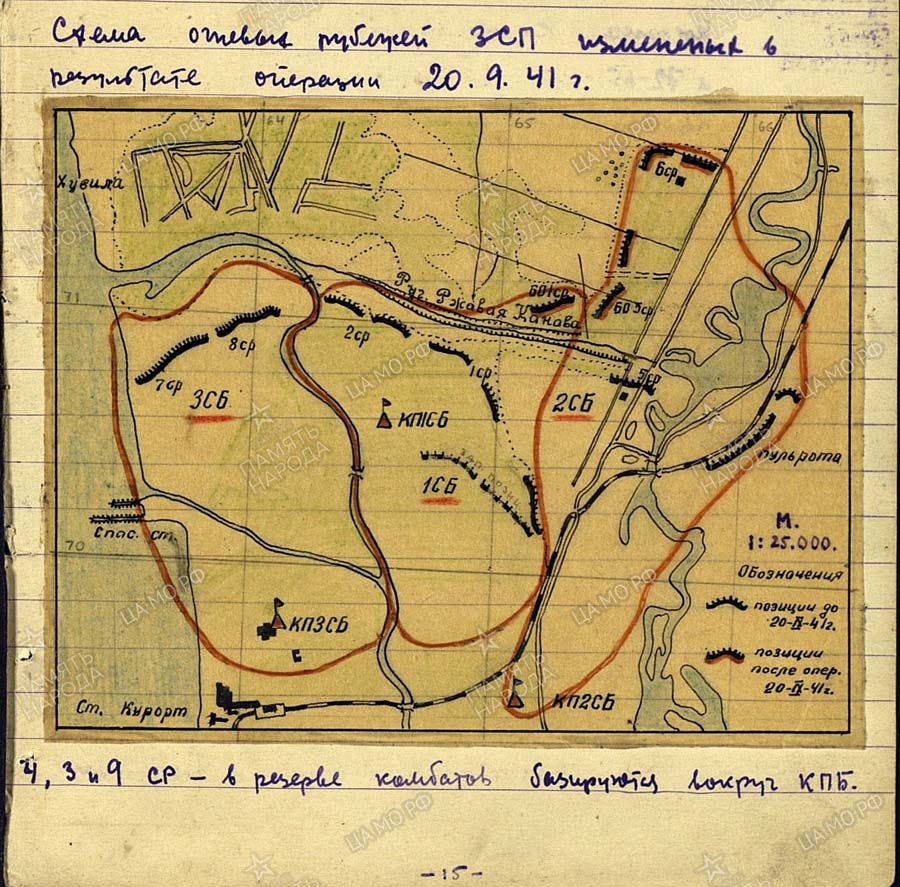 Схема огневых рубежей 3СП измененых в
результате операции 20.9.41 г.
64
65
66
Хувила
6ср
71
Руч. Ржавая Канава
601ср
60 3ср
2ср
8ср
7ср
1ср
5ср
3СБ
КП1СБ
2СБ
1СБ
пульрота
Спас. ст.
70
М.
1:25.000.
Обозначения
позиции до
20-IX-41г.
позиции
после опер.
20-IX-41г.
КП3СБ
КП2СБ
Ст. Курорт
4, 3 и 9 СР – в резерве комбатов базируются вокруг КПБ.
-15-
ПАМЯТЬ
НАРОДА
ЦАМО.РФ